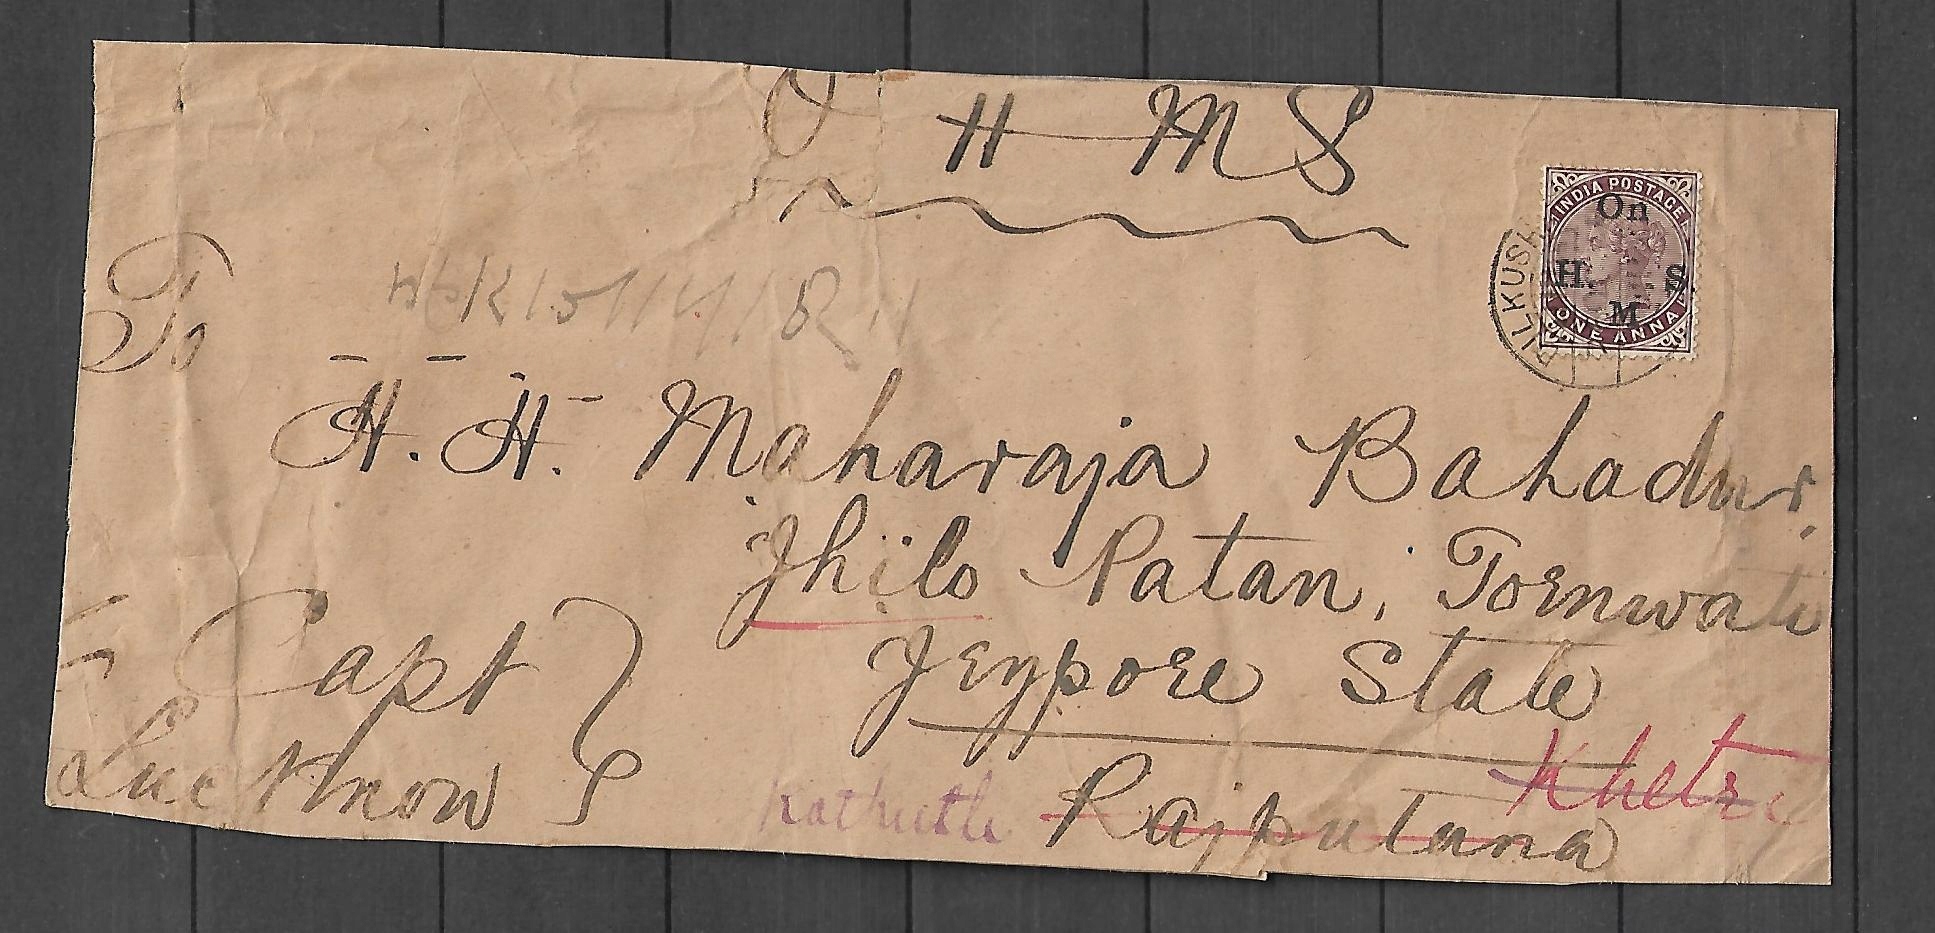 O H M S
INDIA POSTAGE
On
H. S.
M
ONE ANNA
DILKUSH
To
H. H. Maharaja Bahadur,
Jhilo Patan, Tornwati
Jeypore State
Khetri
Rajputana
Capt
Lucknow